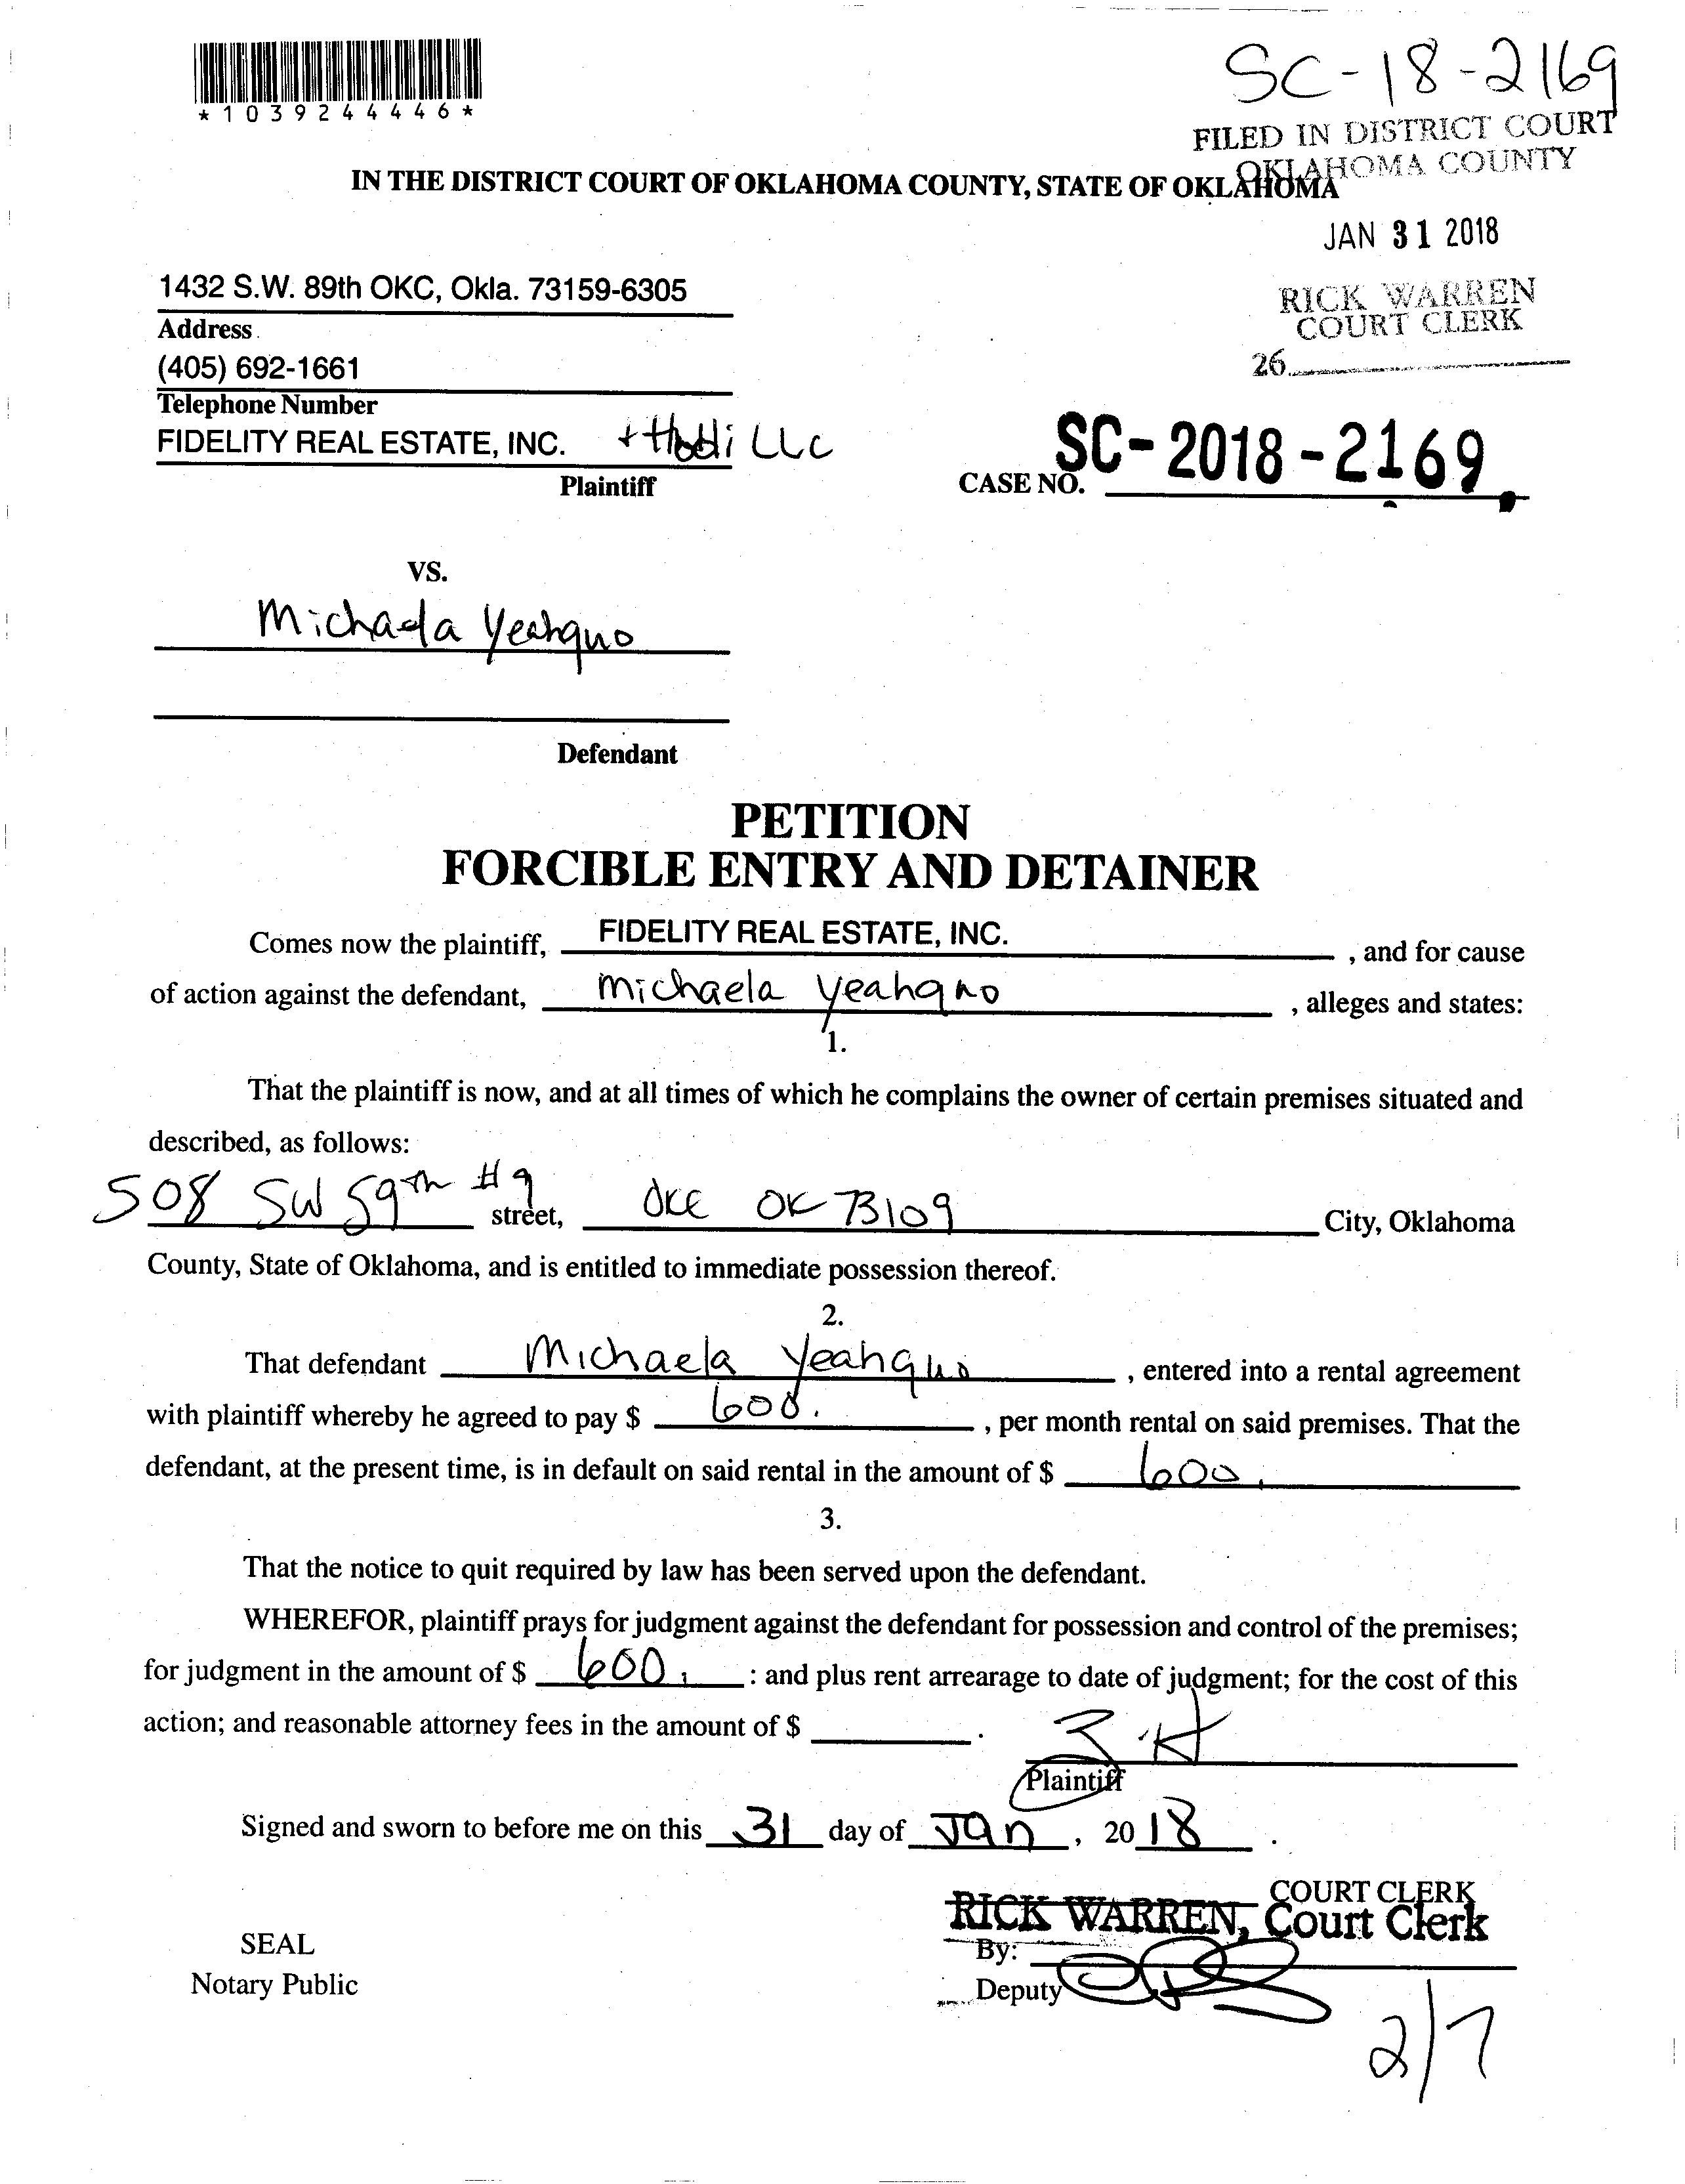 *1039244446*
SC-18-2169
FILED IN DISTRICT COURT
OKLAHOMA COUNTY
IN THE DISTRICT COURT OF OKLAHOMA COUNTY, STATE OF OKLAHOMA
JAN 31 2018
1432 S.W. 89th OKC, Okla. 73159-6305
RICK WARREN
COURT CLERK
Address
(405) 692-1661
26
Telephone Number
FIDELITY REAL ESTATE, INC. + LLC
Plaintiff
CASE NO. SC-2018-2169
VS.
Michaela Yeahquo
Defendant
PETITION
FORCIBLE ENTRY AND DETAINER
Comes now the plaintiff, FIDELITY REAL ESTATE, INC. , and for cause
of action against the defendant, Michaela Yeahquo , alleges and states:
1.
That the plaintiff is now, and at all times of which he complains the owner of certain premises situated and
described, as follows:
508 SW 59th #9 street, OKC OK 73109 City, Oklahoma
County, State of Oklahoma, and is entitled to immediate possession thereof.
2.
That defendant Michaela Yeahquo , entered into a rental agreement
with plaintiff whereby he agreed to pay $ 600. , per month rental on said premises. That the
defendant, at the present time, is in default on said rental in the amount of $ 600.
3.
That the notice to quit required by law has been served upon the defendant.
WHEREFOR, plaintiff prays for judgment against the defendant for possession and control of the premises;
for judgment in the amount of $ 600. : and plus rent arrearage to date of judgment; for the cost of this
action; and reasonable attorney fees in the amount of $ .
Plaintiff
Signed and sworn to before me on this 31 day of Jan , 20 18 .
COURT CLERK
RICK WARREN, Court Clerk
SEAL
By:
Notary Public
Deputy
2/7